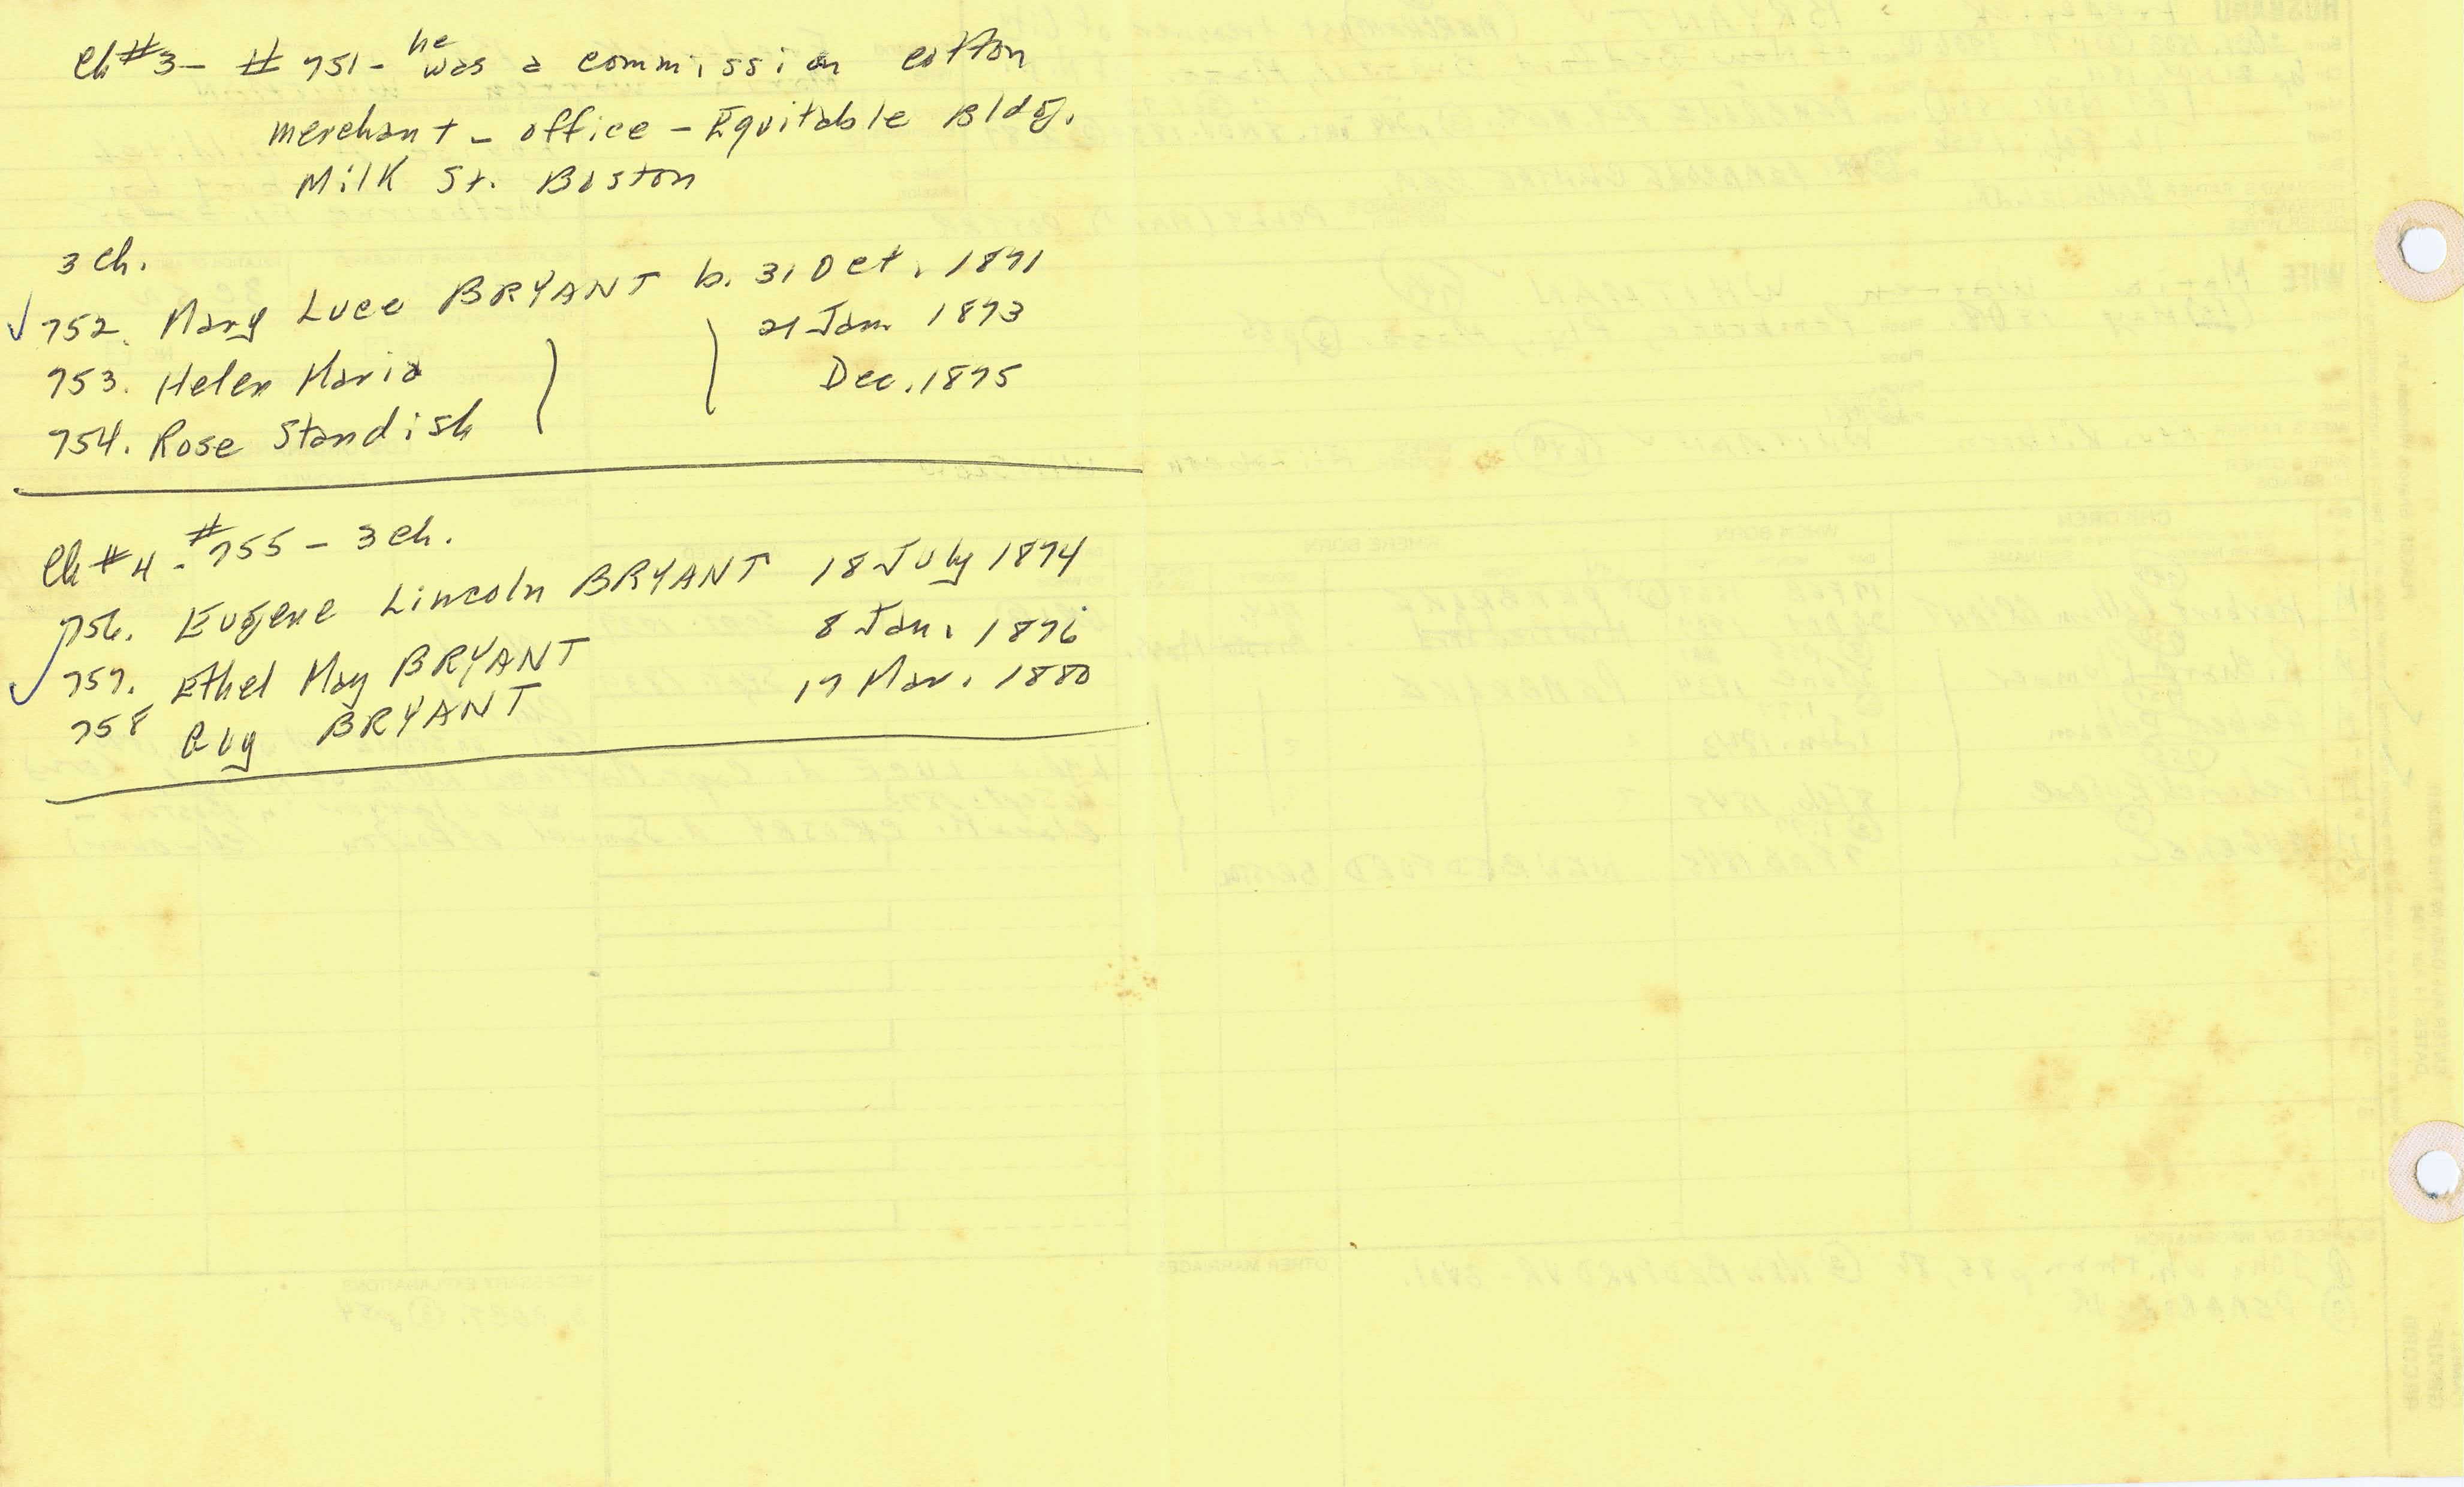 Ch #3 - # 751 - he was a commission cotton
merchant - office - Equitable Bldg.
Milk St. Boston
3 ch.
✓ 752. Mary Luce BRYANT b. 31 Oct. 1871
753. Helen Maria 21 Jan. 1873
754. Rose Standish Dec. 1875
Ch #4 - #755 - 3 ch.
756. Eugene Lincoln BRYANT 18 July 1874
✓ 757. Ethel May BRYANT 8 Jan. 1876
758 Guy BRYANT 17 Mar. 1880